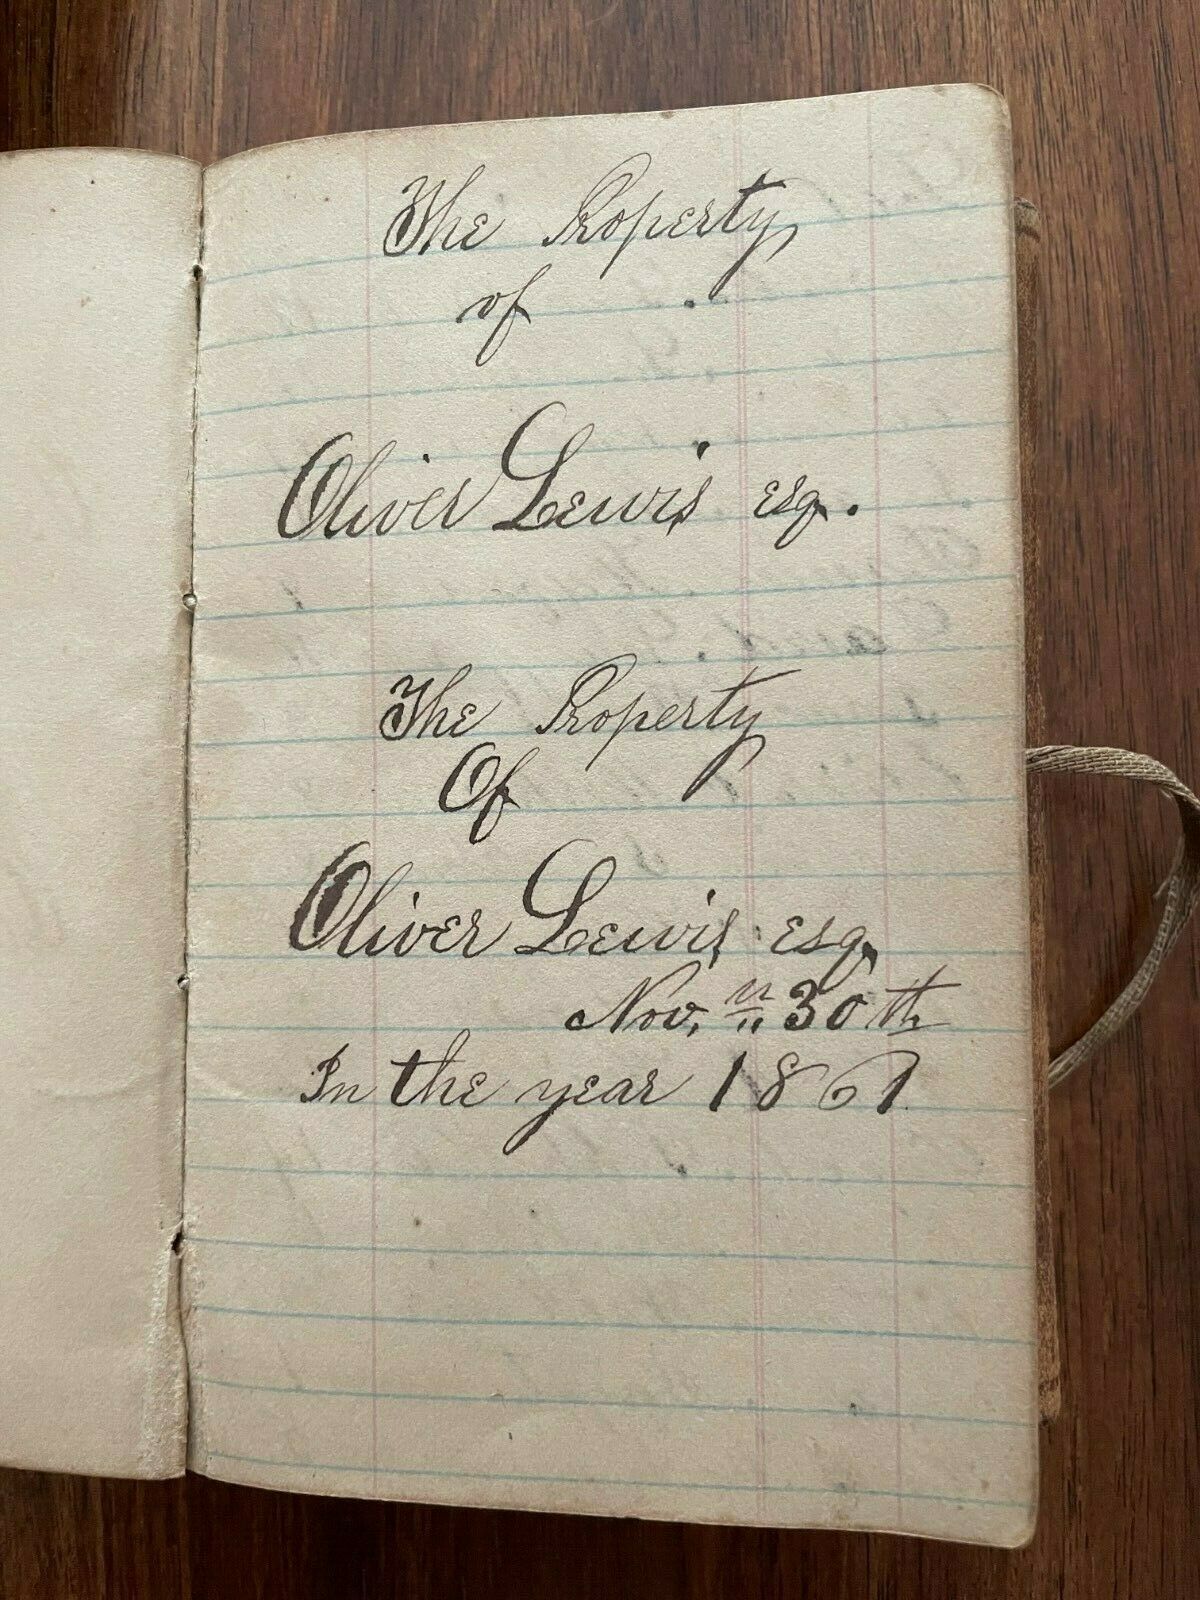 The Property
of
Oliver Lewis esq.
The Property
Of
Oliver Lewis esq
Nov. 30th
In the year 1861